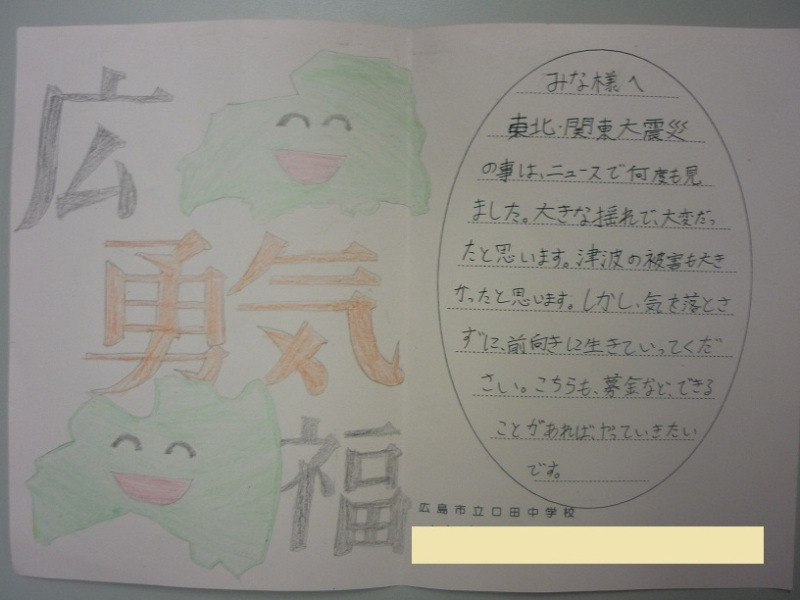 広
勇気
福
みな様へ
東北・関東大震災
の事は、ニュースで何度も見
ました。大きな揺れで、大変だっ
たと思います。津波の被害も大き
かったと思います。しかし、気を落とさ
ずに、前向きに生きていってくだ
さい。こちらも、募金など、できる
ことがあれば、やっていきたい
です。
広島市立口田中学校